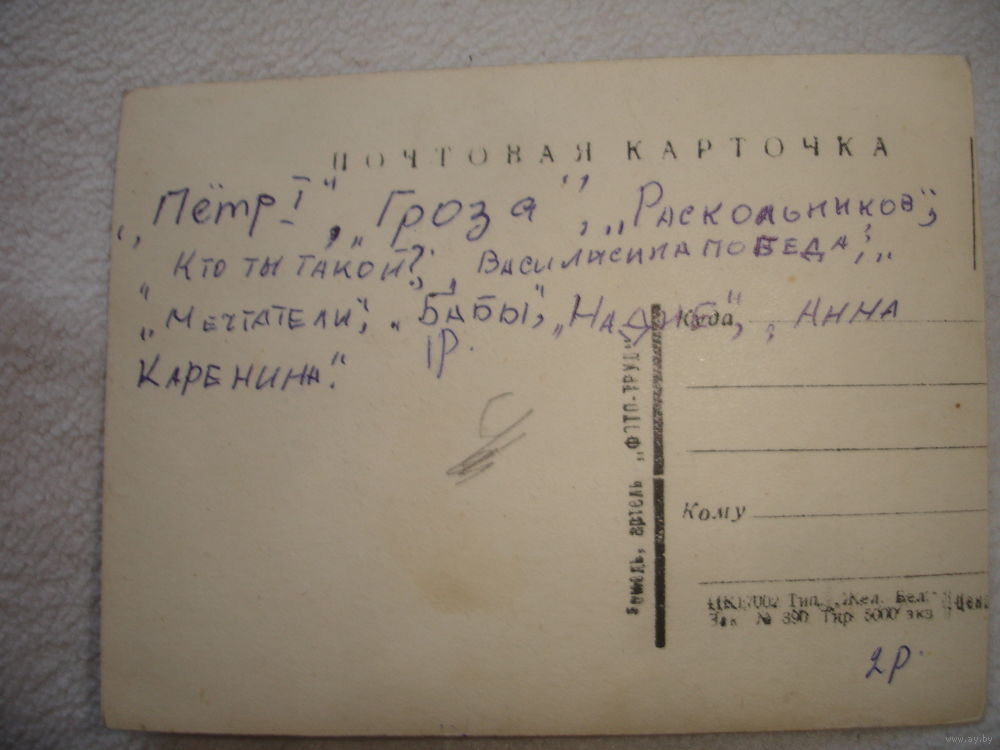 ПОЧТОВАЯ КАРТОЧКА
„Пётр I", „Гроза", „Раскольников",
„Кто ты такой?", „Василисина победа",
„Мечтатели", „Бабы", Анна
Каренина".
1р.
Куда
Кому
Гомель, артель „ФОТО-ТРУД"
Тип. „Жел. Бел."
Зак № 390 Тир 5000 экз
2р.
www.ay.by